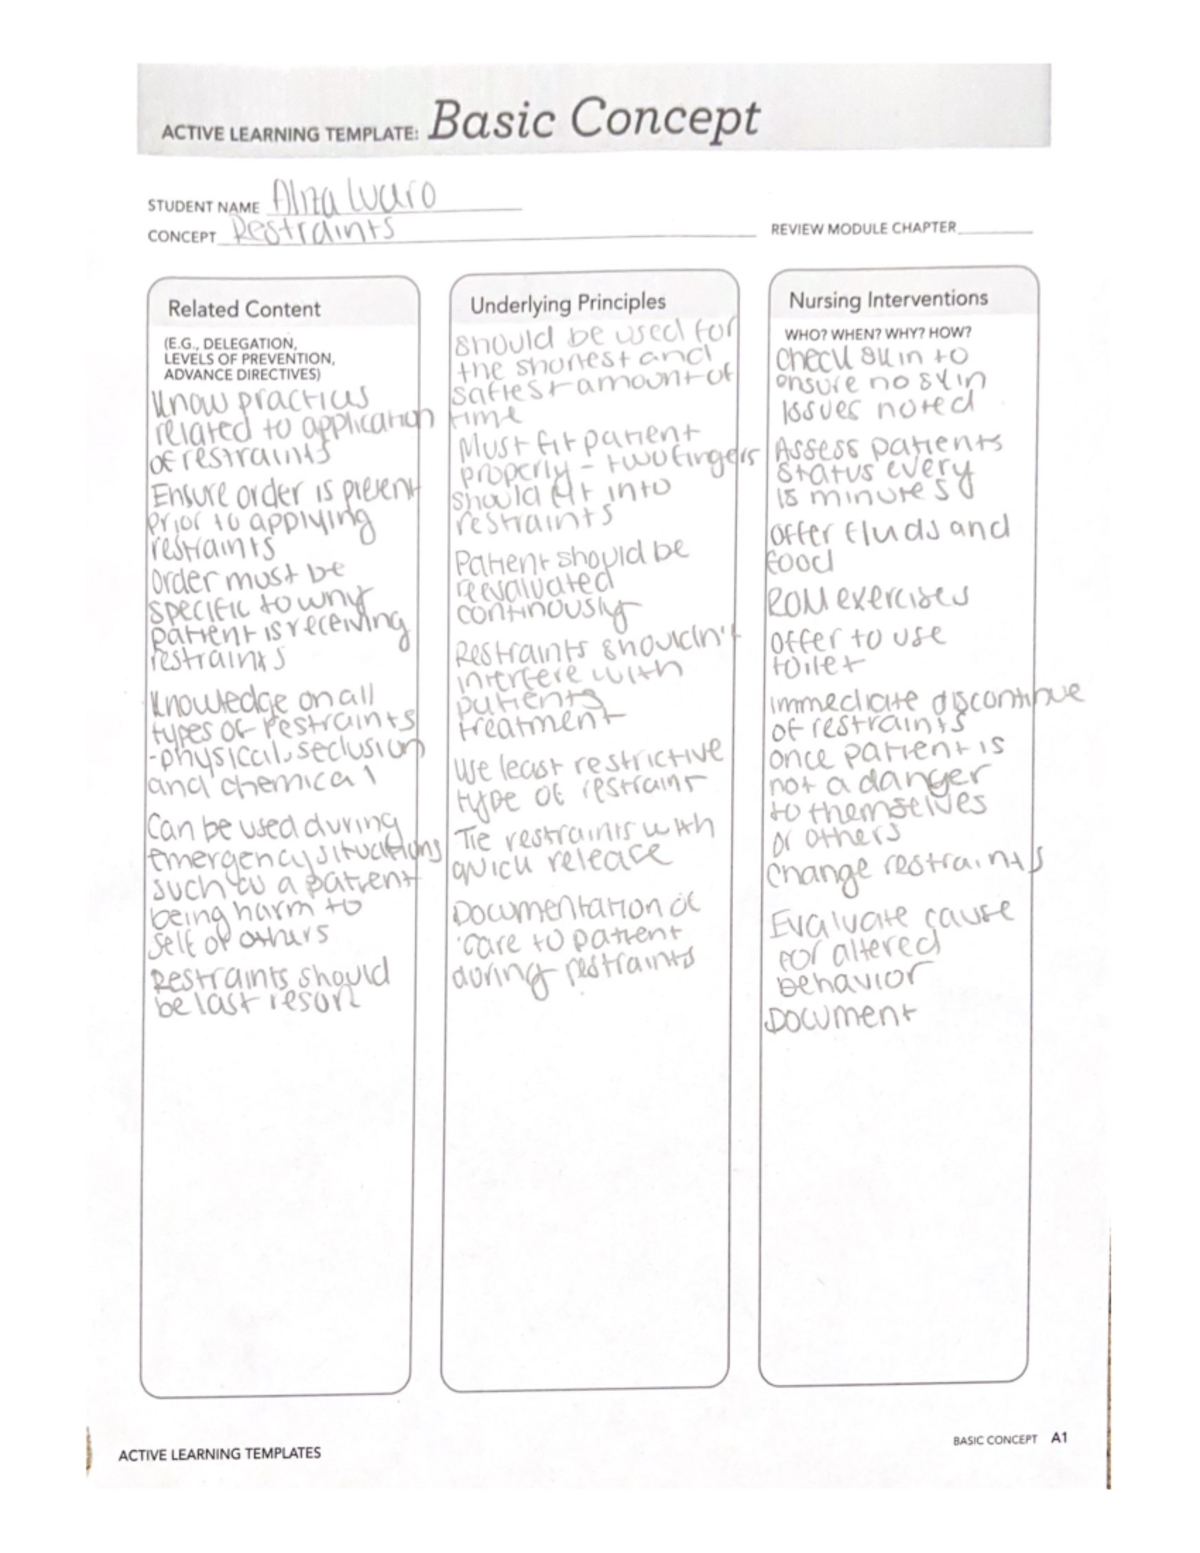 ACTIVE LEARNING TEMPLATE: Basic Concept
STUDENT NAME
CONCEPT Restraints
REVIEW MODULE CHAPTER
Related Content
(E.G., DELEGATION,
LEVELS OF PREVENTION,
ADVANCE DIRECTIVES)
Know practices
related to application
of restraints
Ensure order is present
prior to applying
restraints
Order must be
specific to why
patient is receiving
restraints
Knowledge on all
types of restraints
-physical, seclusion
and chemical
Can be used during
emergency situations
such as a patient
being harm to
self or others
Restraints should
be last resort
Underlying Principles
Should be used for
the shortest and
safest amount of
time
Must fit patient
properly - two fingers
should fit into
restraints
Patient should be
reevaluated
continously
Restraints shouldn't
interfere with
patients
treatment
Use least restrictive
type of restraint
Tie restraints with
quick release
Documentation of
care to patient
during restraints
Nursing Interventions
WHO? WHEN? WHY? HOW?
Check skin to
ensure no skin
issues noted
Assess patients
status every
15 minutes
Offer fluids and
food
ROM exercises
Offer to use
toilet
immediate discontinue
of restraints
once patient is
not a danger
to themselves
or others
Change restraints
Evaluate cause
for altered
behavior
Document
ACTIVE LEARNING TEMPLATES
BASIC CONCEPT A1